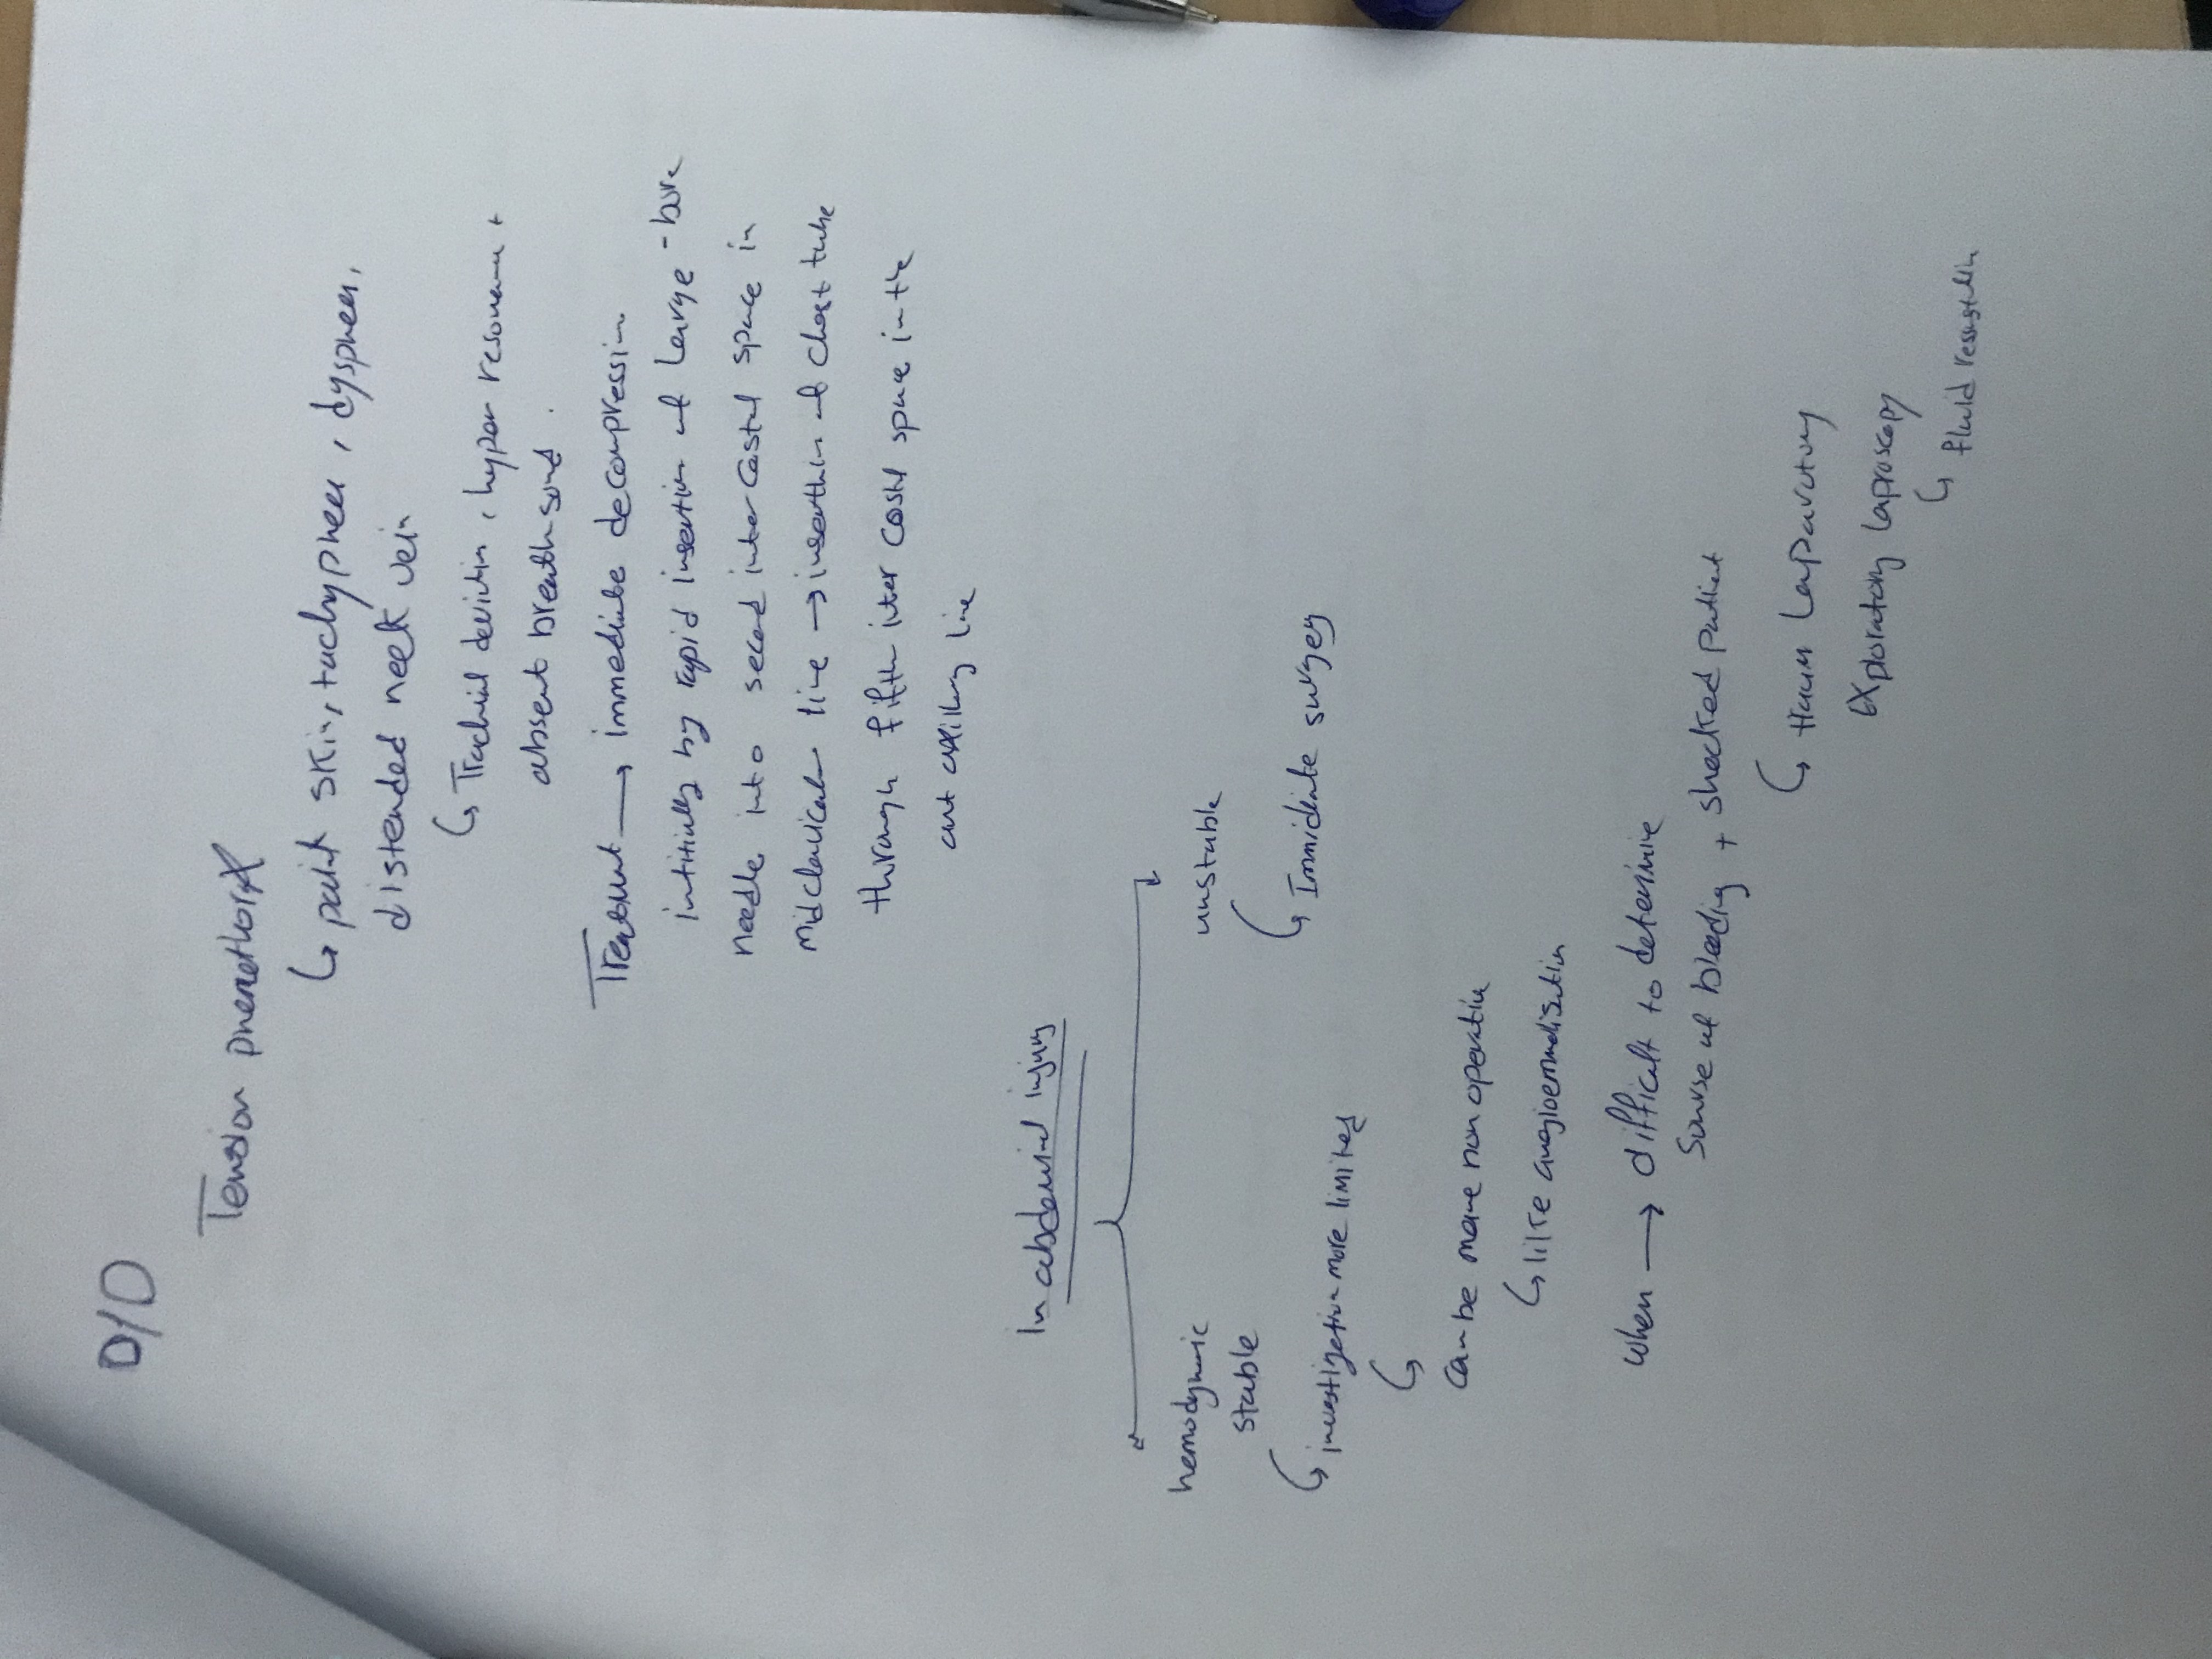 D/D
Tension pnenothorX
↳ paint skin, tachypnea, dyspnea,
distended neck vein
↳ Trachial devitin, hyper resonanu +
absent breath sound.
Treatmnt → immediate decompressin
intitially by rapid insertin of Large-bore
needle into second inter costal space in
midclavicular line → inserthin of chest tube
through fifth inter costal space in the
ant axillary line
In abdominal injury
hemodynamic
stable
↳ investigation more limited
↳
can be more non operatiu
↳ like angioembolisatin
unstable
↳ Immidiate surgey
when → difficult to determine
Sourse of bleeding + shocked patient
↳ trauma Laparatomy
exploratory laproscopy
↳ fluid ressustitin